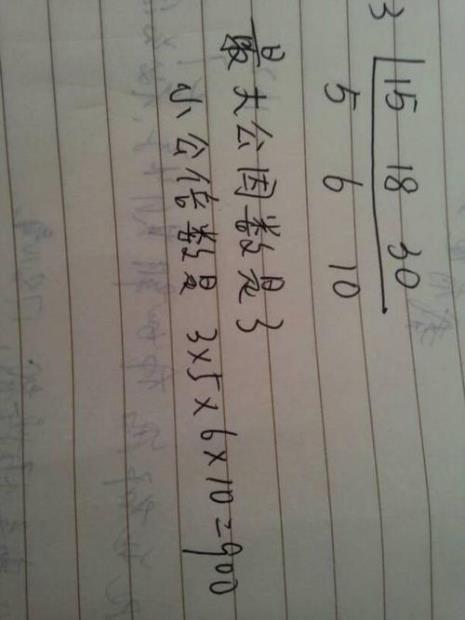 3 15 18 30
5 6 10
最大公因数是3
小公倍数是 3×5×6×10=900